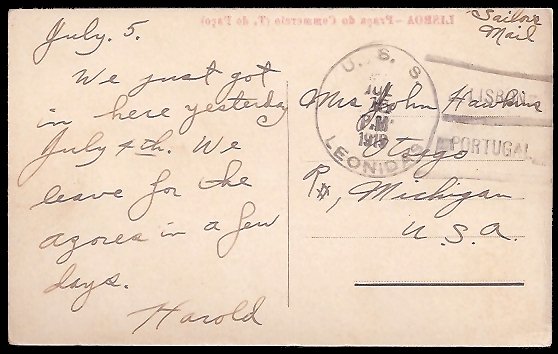 LISBOA – Praça do Commercio (T. do Paço)
Sailors
Mail
July. 5.
We just got
in here yesterday
July 4th. We
leave for the
azores in a few
days.
Harold
U. S. S. LEONIDAS
JUL
P.M
1919
LISBON-
PORTUGAL
Mrs John Hawkins
Otsego
Michigan
U.S.A.